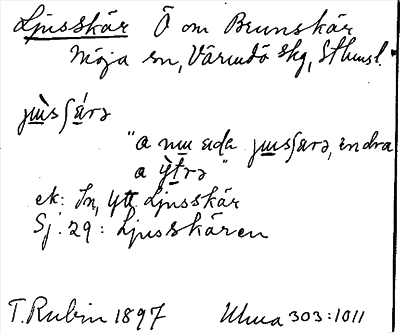 Ljusskär Ö om Brunskär
Möja sn, Värmdö skg, Sthmsl.
jɯ̀sʃǽrə
"a nɯ ada jɯsʃærə, endra
a ỳtrə"
ek: In, Ytt. Ljusskär
Sj. 29: Ljusskären
T. Rubin 1897 Uluma 303:1011